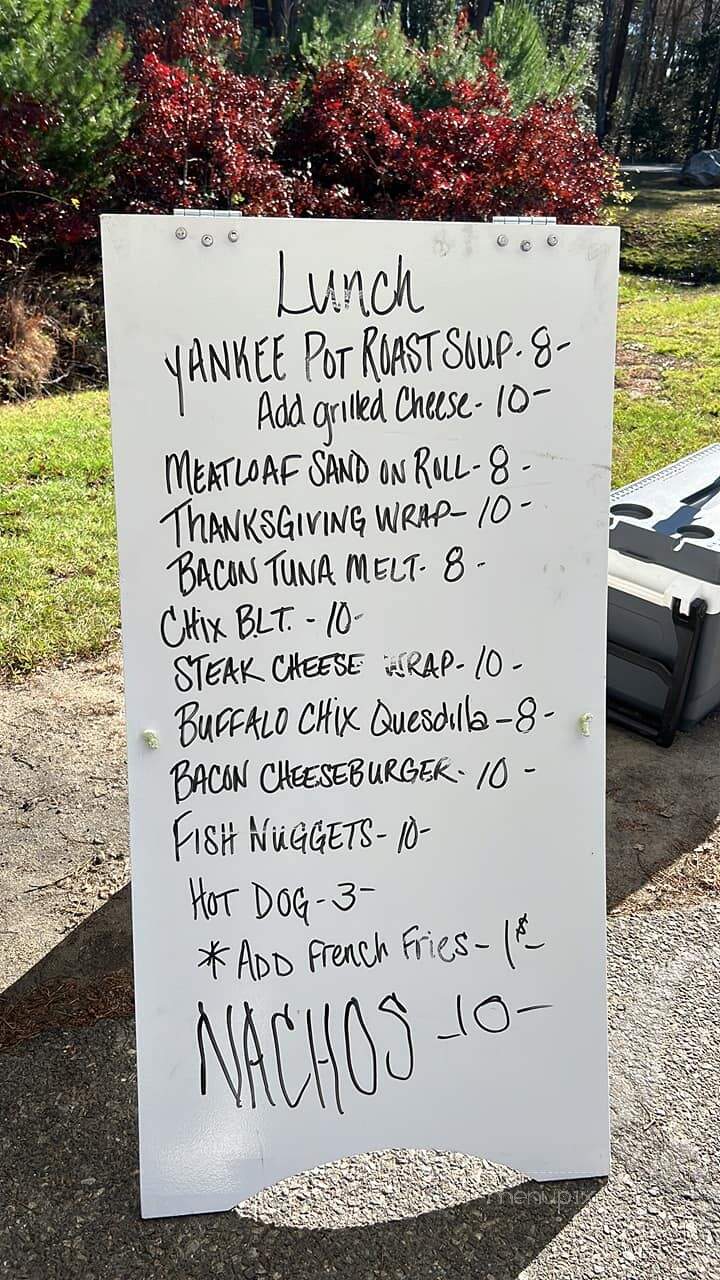 Lunch
YANKEE POT ROAST SOUP - 8 -
Add grilled Cheese - 10 -
MEATLOAF SAND ON ROLL - 8 -
THANKSGIVING WRAP - 10 -
BACON TUNA MELT - 8 -
CHIX B.L.T. - 10 -
STEAK CHEESE WRAP - 10 -
BUFFALO CHIX Quesdilla - 8 -
BACON CHEESEBURGER - 10 -
FISH NUGGETS - 10 -
HOT DOG - 3 -
* ADD French Fries - 1$ -
NACHOS - 10 -